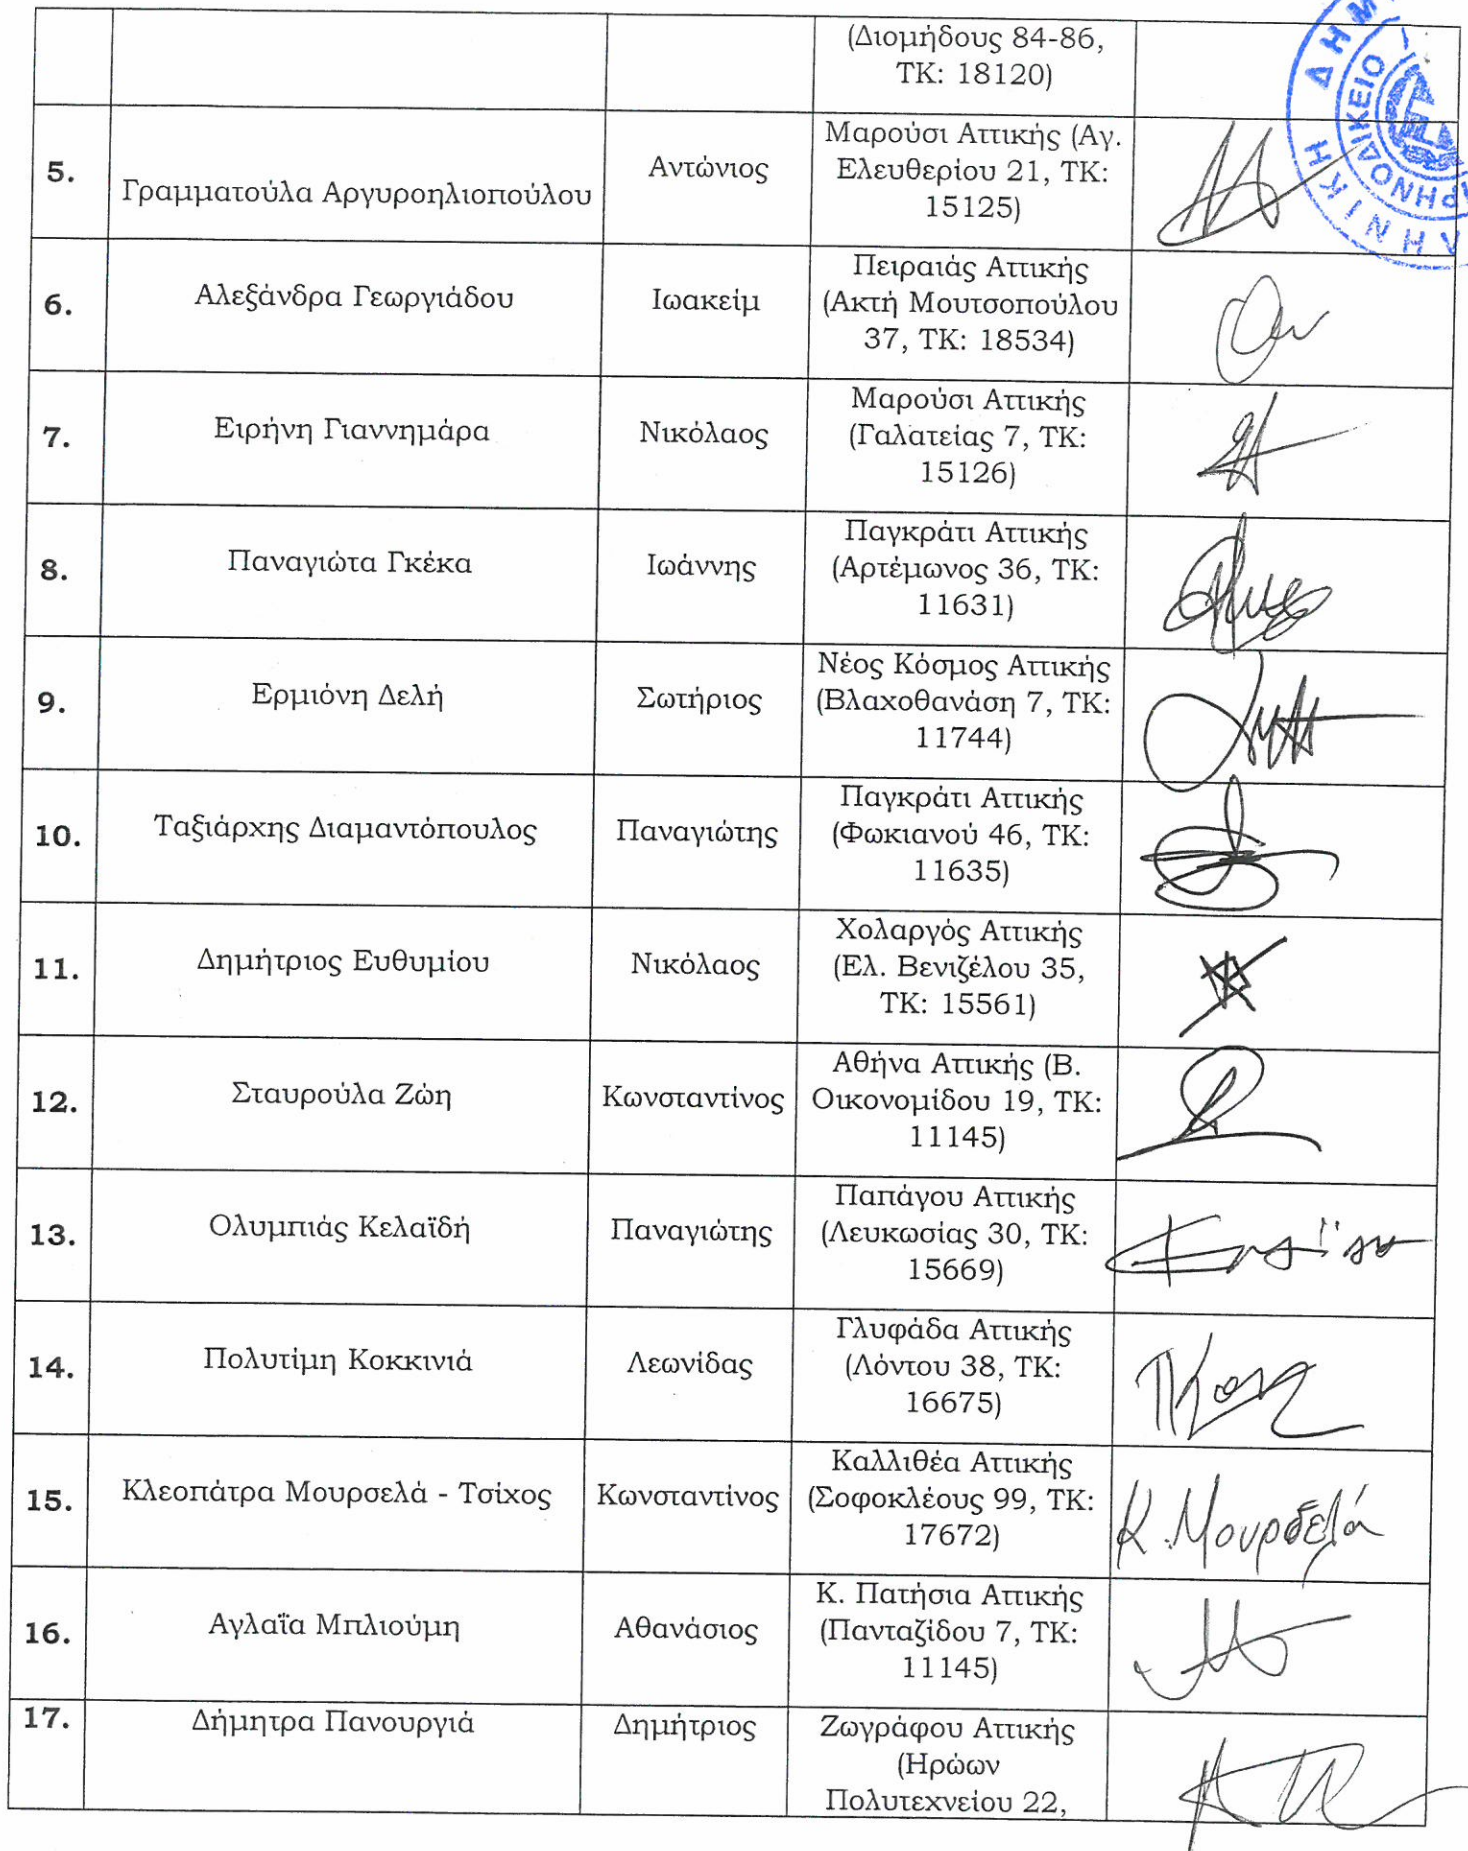 (Διομήδους 84-86,
ΤΚ: 18120)
5.
Γραμματούλα Αργυροηλιοπούλου
Αντώνιος
Μαρούσι Αττικής (Αγ.
Ελευθερίου 21, ΤΚ:
15125)
6.
Αλεξάνδρα Γεωργιάδου
Ιωακείμ
Πειραιάς Αττικής
(Ακτή Μουτσοπούλου
37, ΤΚ: 18534)
7.
Ειρήνη Γιαννημάρα
Νικόλαος
Μαρούσι Αττικής
(Γαλατείας 7, ΤΚ:
15126)
8.
Παναγιώτα Γκέκα
Ιωάννης
Παγκράτι Αττικής
(Αρτέμωνος 36, ΤΚ:
11631)
9.
Ερμιόνη Δελή
Σωτήριος
Νέος Κόσμος Αττικής
(Βλαχοθανάση 7, ΤΚ:
11744)
10.
Ταξιάρχης Διαμαντόπουλος
Παναγιώτης
Παγκράτι Αττικής
(Φωκιανού 46, ΤΚ:
11635)
11.
Δημήτριος Ευθυμίου
Νικόλαος
Χολαργός Αττικής
(Ελ. Βενιζέλου 35,
ΤΚ: 15561)
12.
Σταυρούλα Ζώη
Κωνσταντίνος
Αθήνα Αττικής (Β.
Οικονομίδου 19, ΤΚ:
11145)
13.
Ολυμπιάς Κελαϊδή
Παναγιώτης
Παπάγου Αττικής
(Λευκωσίας 30, ΤΚ:
15669)
14.
Πολυτίμη Κοκκινιά
Λεωνίδας
Γλυφάδα Αττικής
(Λόντου 38, ΤΚ:
16675)
15.
Κλεοπάτρα Μουρσελά - Τσίχος
Κωνσταντίνος
Καλλιθέα Αττικής
(Σοφοκλέους 99, ΤΚ:
17672)
Κ. Μουρσελά
16.
Αγλαΐα Μπλιούμη
Αθανάσιος
Κ. Πατήσια Αττικής
(Πανταζίδου 7, ΤΚ:
11145)
17.
Δήμητρα Πανουργιά
Δημήτριος
Ζωγράφου Αττικής
(Ηρώων
Πολυτεχνείου 22,